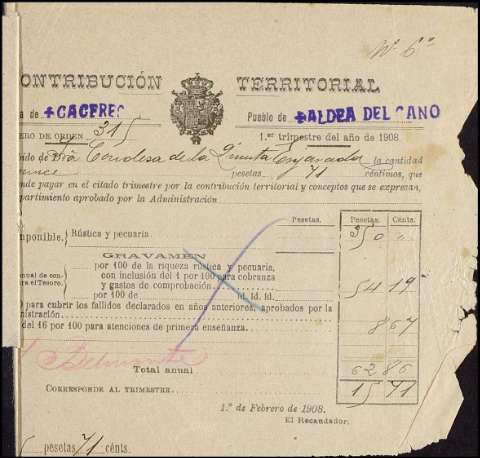 Nº 6º
ONTRIBUCIÓN TERRITORIAL
a de +CACERES Pueblo de +ALDEA DEL CANO
ERO DE ORDEN 315 1.er trimestre del año de 1908.
bido de Condesa de la Quinta Enjarada la cantidad
quince pesetas 71 céntimos, que
nde pagar en el citado trimestre por la contribución territorial y conceptos que se expresan,
partimiento aprobado por la Administración
Pesetas. Pesetas. Cénts.
mponible. Rústica y pecuaria.
GRAVAMEN
por 100 de la riqueza rústica y pecuaria,
anual de con- con inclusión del 1 por 100 para cobranza
ra el Tesoro. y gastos de comprobación. 54 19
por 100 de Id. Id.
0 para cubrir los fallidos declarados en años anteriores, aprobados por la
inistración.
del 16 por 100 para atenciones de primera enseñanza. 8 67
Total anual 62 86
CORRESPONDE AL TRIMESTRE. 15 71
1.º de Febrero de 1908.
El Recaudador.
5 pesetas 71 cénts.